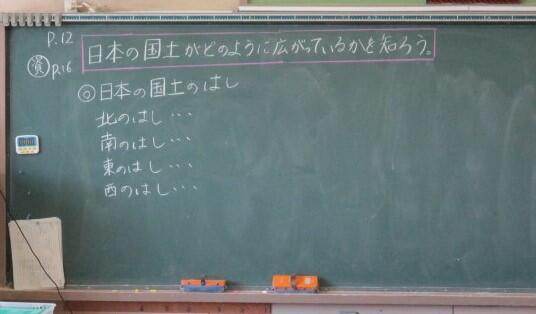 P.12
日本の国土がどのように広がっているかを知ろう。
資 P.16
◎日本の国土のはし
北のはし・・・
南のはし・・・
東のはし・・・
西のはし・・・